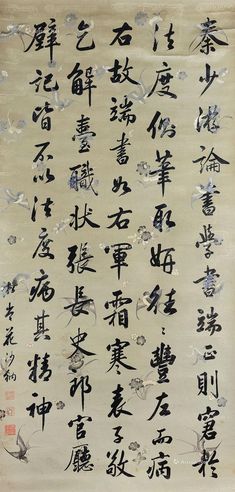 秦少游論書學書端正則窘於
法度側筆取妍往往豐左而病
右故端書如右軍霜寒表子敬
乞解臺職狀張長史郎官廳
壁記皆不以法度病其精神
花沙納